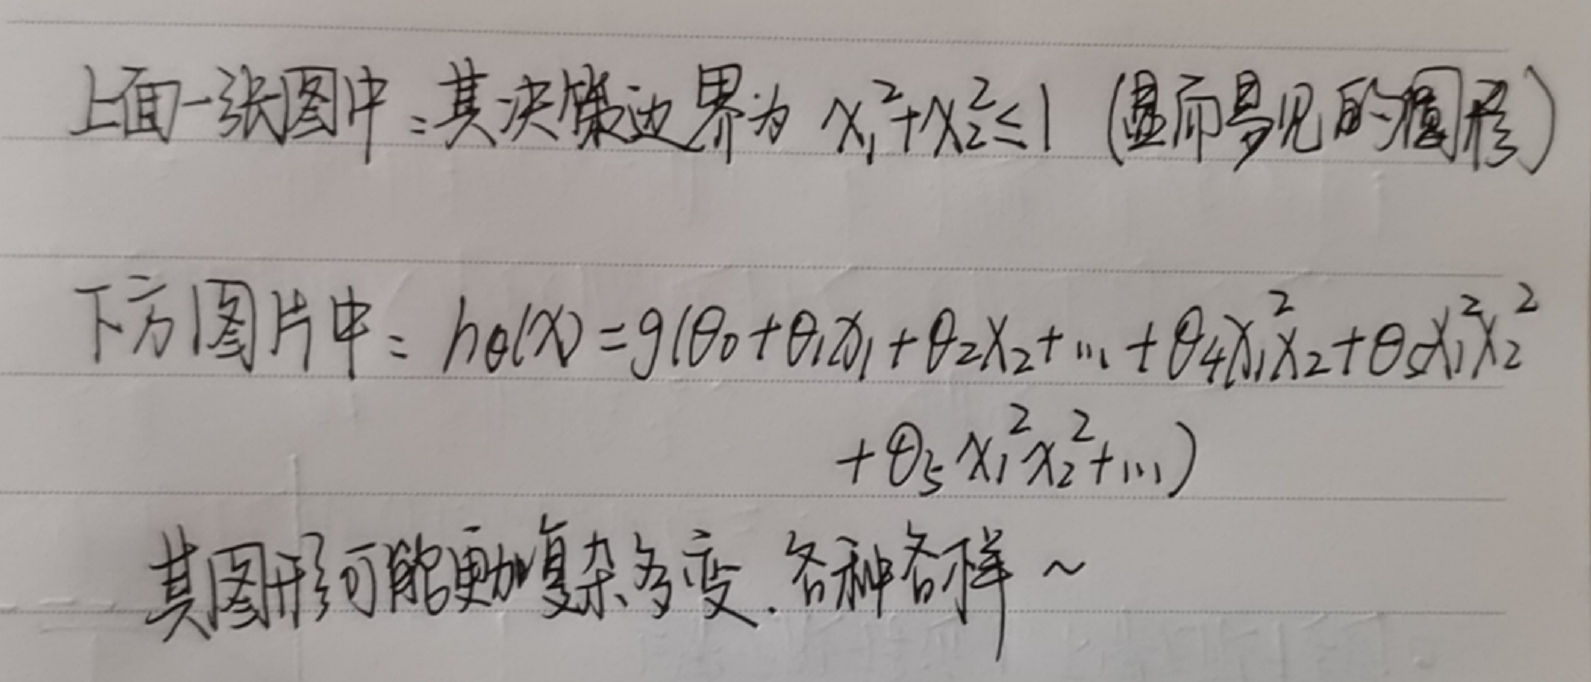 上面一张图中:其决策边界为 x₁²+x₂²≤1 (显而易见的圆形)
下方图片中: hθ(x)=g(θ₀+θ₁x₁+θ₂x₂+...+θ₄x₁²x₂+θ₅x₁²x₂²
+θ₅x₁²x₂²+...)
其图形可能更加复杂多变.各种各样~